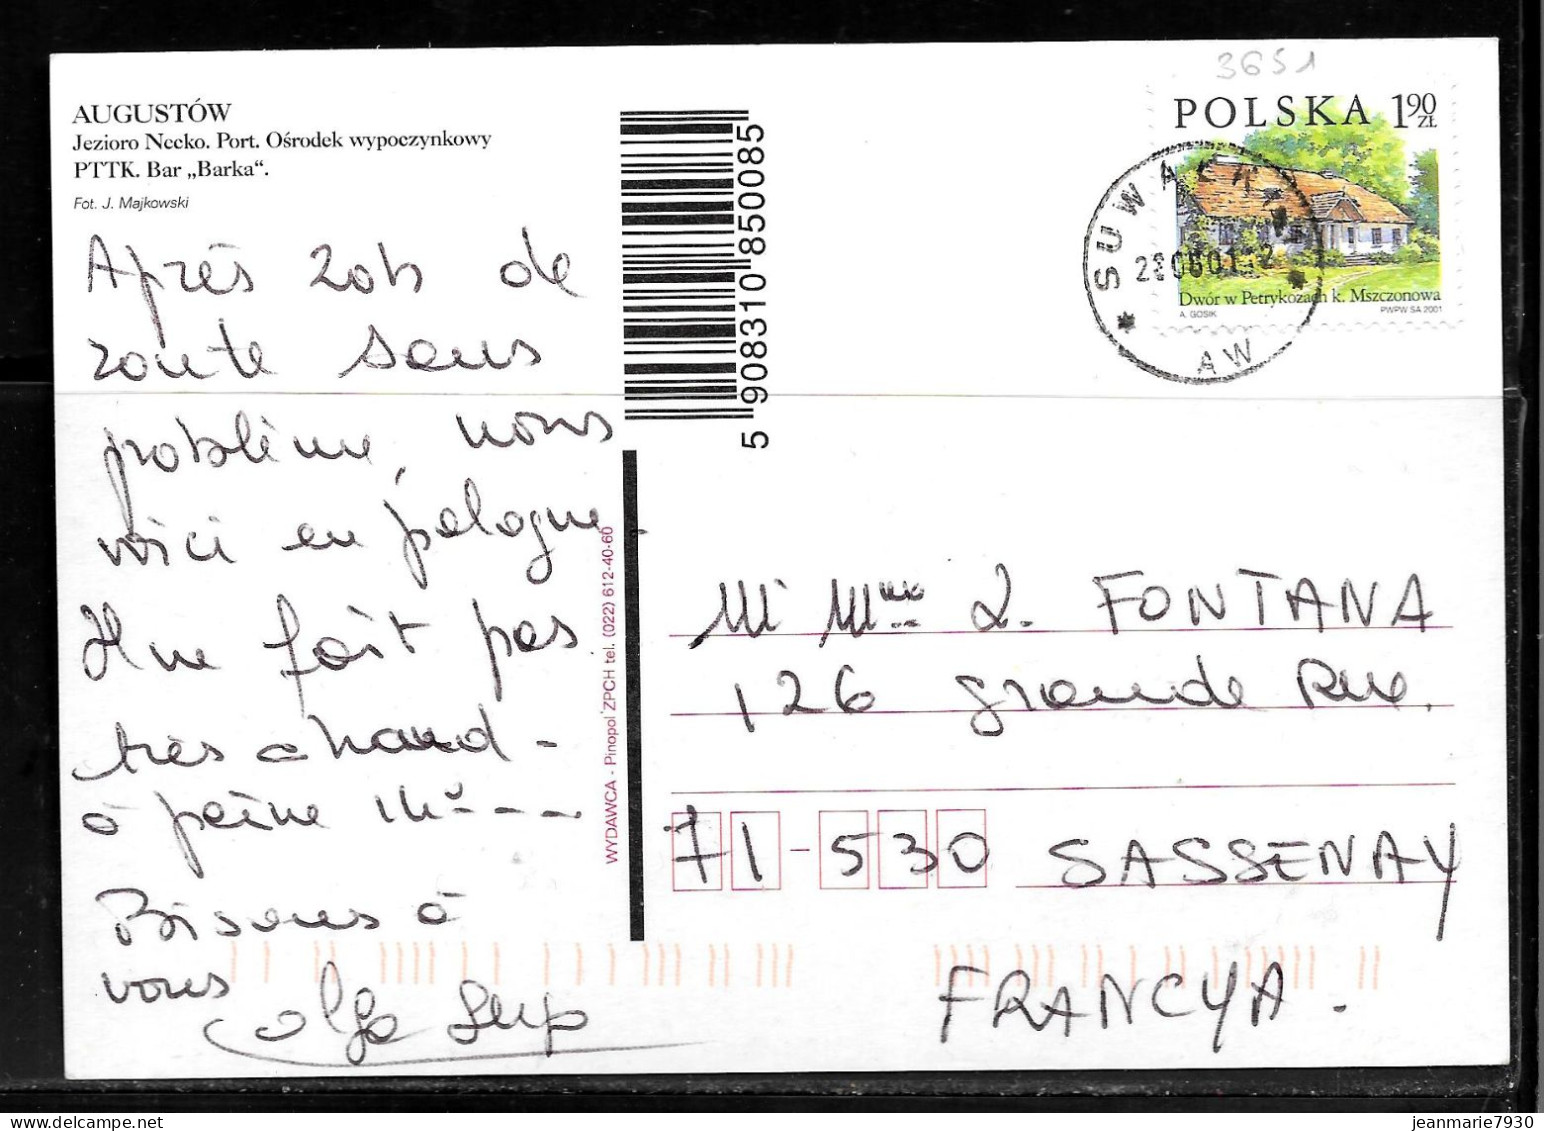 AUGUSTÓW
Jezioro Necko. Port. Ośrodek wypoczynkowy
PTTK. Bar „Barka“.
Fot. J. Majkowski
Après 20h de
route sans
problème, nous
voici en pologne.
Il ne fait pas
très chaud -
à peine
Bisous à
vous
Olga
5 908310 850085
WYDAWCA - Pinopol ZPCH tel. (022) 612-40-60
3651
POLSKA 1 90 ZŁ
Dwór w Petrykozach k. Mszczonowa
A. GOSIK
PWPW SA 2001
SUWAŁKI
AW
M. Mme L. FONTANA
126 grande Rue.
71-530 SASSENAY
FRANCYA.
jeanmarie7930